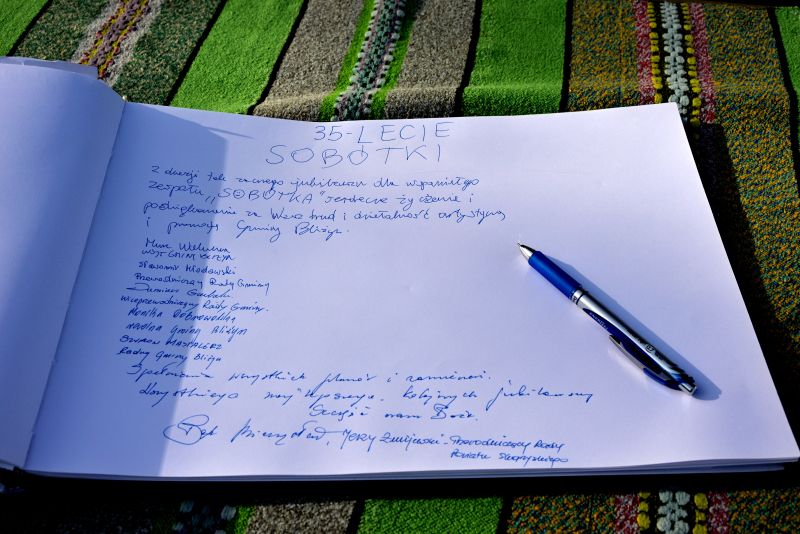 35-LECIE
SOBÓTKI
Z okazji tak zacnego jubileuszu dla wspaniałego
zespołu „SOBÓTKA" serdeczne życzenia i
podziękowanie za Wasz trud i działalność artystyczną
i promocję Gminy Bliżyn.
WÓJT GMINY BLIŻYN
Sławomir
Przewodniczący Rady Gminy
Damian
Wiceprzewodniczący Rady Gminy.
Monika Dobrowolska
Radna Gminy Bliżyn
Radny Gminy Bliżyn
Spełnienia wszystkich planów i zamierzeń.
Wszystkiego najlepszego. Kolejnych jubileuszy
Szczęść wam Boże.
Jerzy Żmijewski - Przewodniczący Rady
Powiatu Skarżyskiego